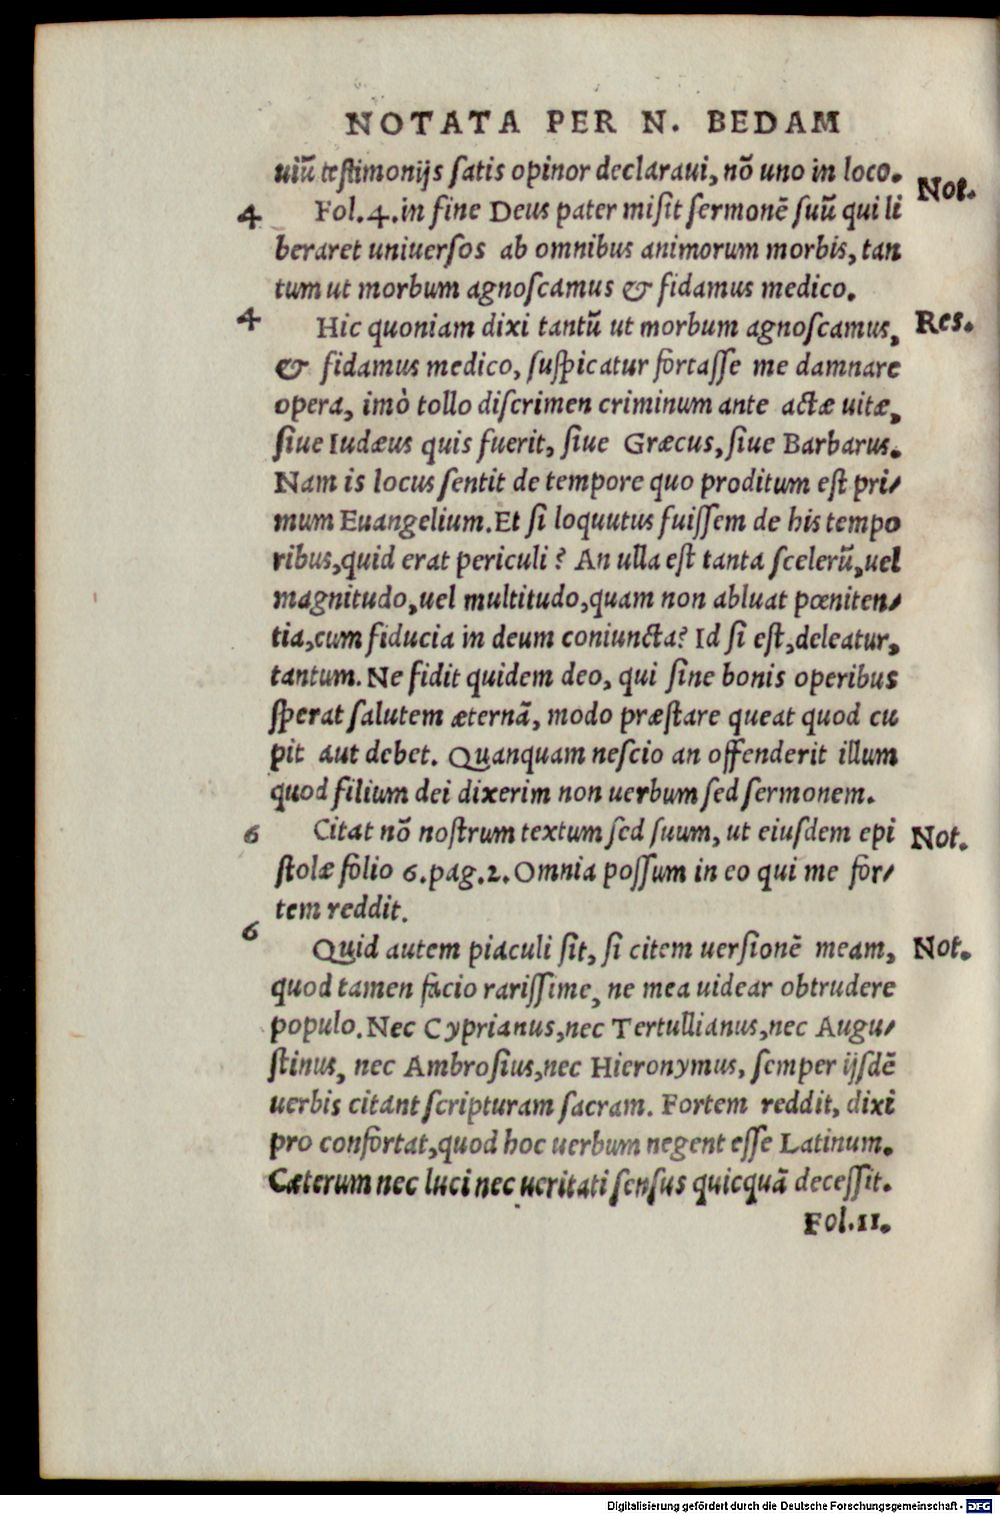 NOTATA PER N. BEDAM
uiũ testimonijs satis opinor declaraui, nõ uno in loco.
Not.
4 Fol.4.in fine Deus pater misit sermonẽ suũ qui li
beraret uniuersos ab omnibus animorum morbis, tan
tum ut morbum agnoscamus & fidamus medico.
4 Hic quoniam dixi tantũ ut morbum agnoscamus, Res.
& fidamus medico, suspicatur fortasse me damnare
opera, imò tollo discrimen criminum ante actæ uitæ,
siue Iudæus quis fuerit, siue Græcus, siue Barbarus.
Nam is locus sentit de tempore quo proditum est pri/
mum Euangelium. Et si loquutus fuissem de his tempo
ribus, quid erat periculi? An ulla est tanta scelerũ, uel
magnitudo, uel multitudo, quam non abluat pœniten/
tia, cum fiducia in deum coniuncta? Id si est, deleatur,
tantum. Ne fidit quidem deo, qui sine bonis operibus
sperat salutem æternã, modo præstare queat quod cu
pit aut debet. Quanquam nescio an offenderit illum
quod filium dei dixerim non uerbum sed sermonem.
6 Citat nõ nostrum textum sed suum, ut eiusdem epi Not.
stolæ folio 6.pag.2. Omnia possum in eo qui me for/
tem reddit.
6 Quid autem piaculi sit, si citem uersionẽ meam, Not.
quod tamen facio rarissime, ne mea uidear obtrudere
populo. Nec Cyprianus, nec Tertullianus, nec Augu/
stinus, nec Ambrosius, nec Hieronymus, semper ijsdẽ
uerbis citant scripturam sacram. Fortem reddit, dixi
pro confortat, quod hoc uerbum negent esse Latinum.
Cæterum nec luci nec ueritati sensus quicquã decessit.
Fol.11.
Digitalisierung gefördert durch die Deutsche Forschungsgemeinschaft - DFG